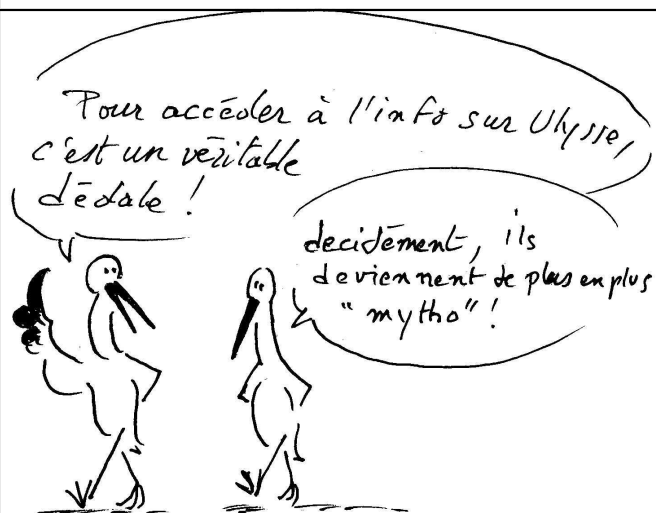 Pour accéder à l'info sur Ulysse,
c'est un véritable
dédale !
decidément, ils
deviennent de plus en plus
"mytho" !